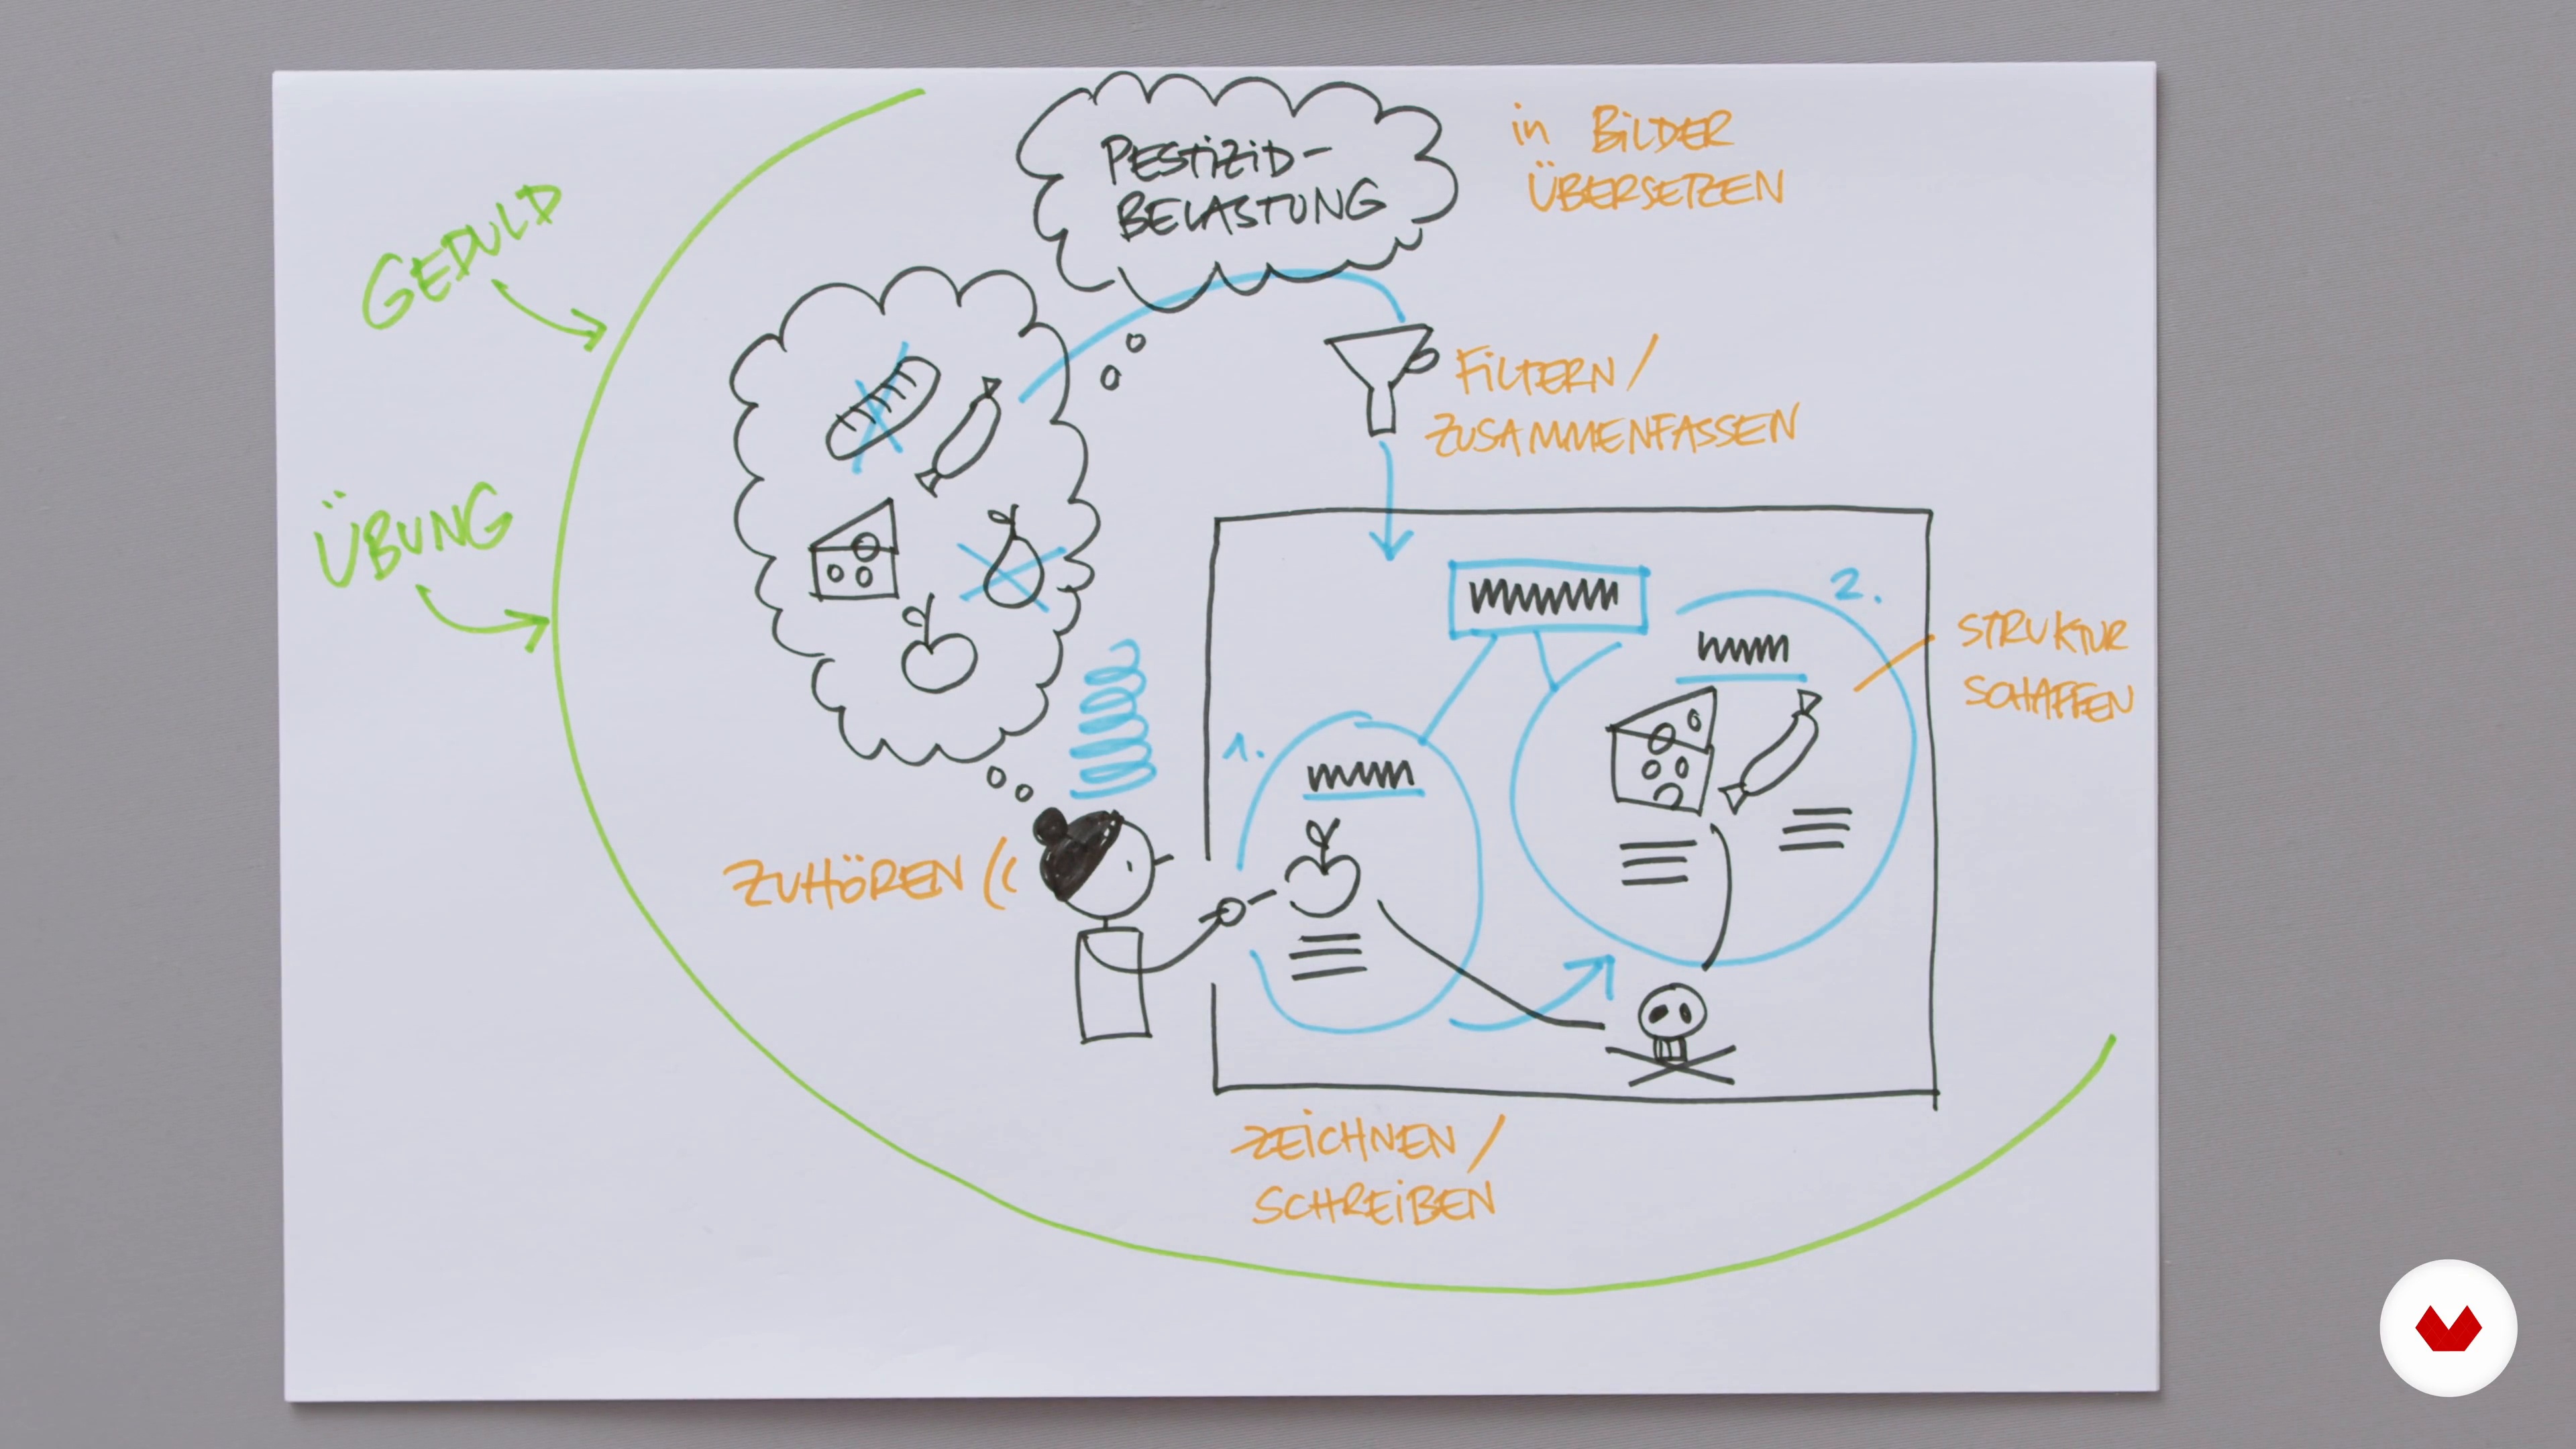 PESTIZID-
BELASTUNG
in BILDER
ÜBERSETZEN
GEDULD
FILTERN/
ZUSAMMENFASSEN
ÜBUNG
2.
STRUKTUR
SCHAFFEN
1.
ZUHÖREN
ZEICHNEN/
SCHREIBEN